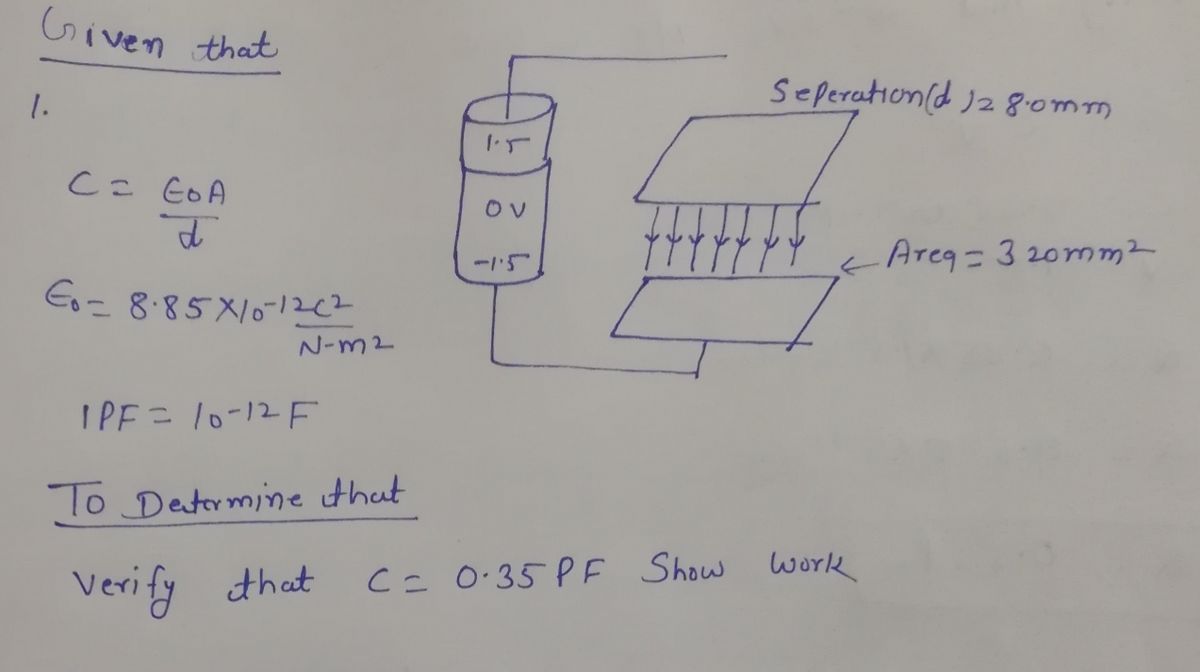 Given that
1.
Seperation(d)=8.0mm
1.5
C = ϵ0A
d
0V
-1.5
Area = 320mm2
ϵ0 = 8.85×10-12C2
N-m2
1PF = 10-12 F
To Determine that
Verify that C = 0.35 PF Show work